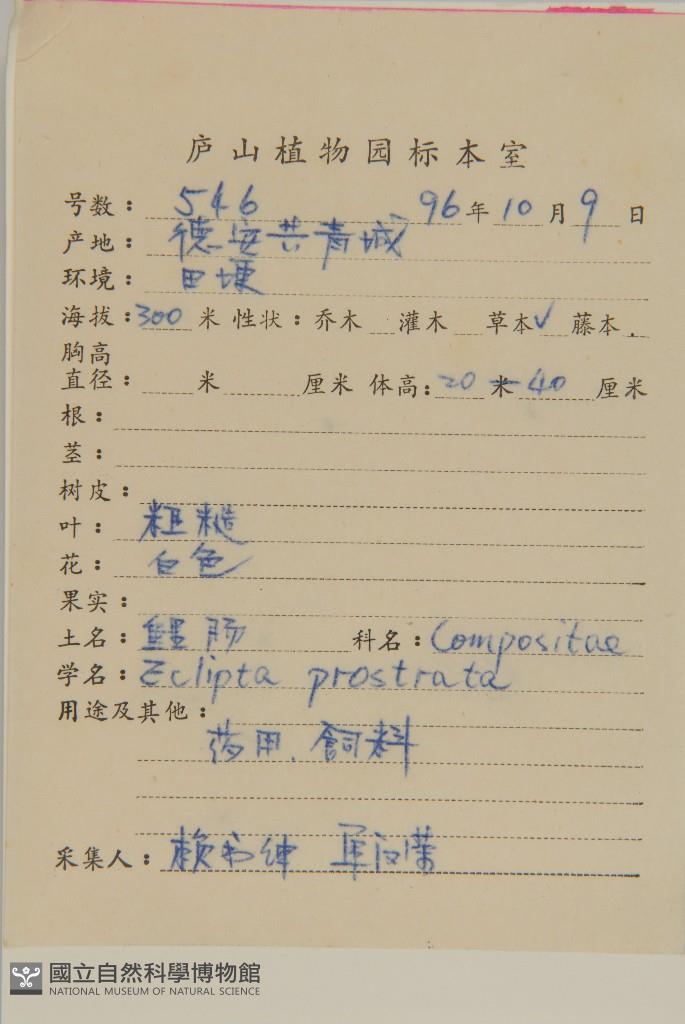 庐山植物园标本室
号数: 546 96年10月9日
产地: 德安共青城
环境: 田埂
海拔: 300米 性状: 乔木 灌木 草本√ 藤本.
胸高
直径: 米 厘米 体高: 20米40厘米
根:
茎:
树皮:
叶: 粗糙
花: 白色
果实:
土名: 鳢肠 科名: Compositae
学名: Eclipta prostrata
用途及其他:
药用、飼料
采集人: 赖书绅
國立自然科學博物館
NATIONAL MUSEUM OF NATURAL SCIENCE